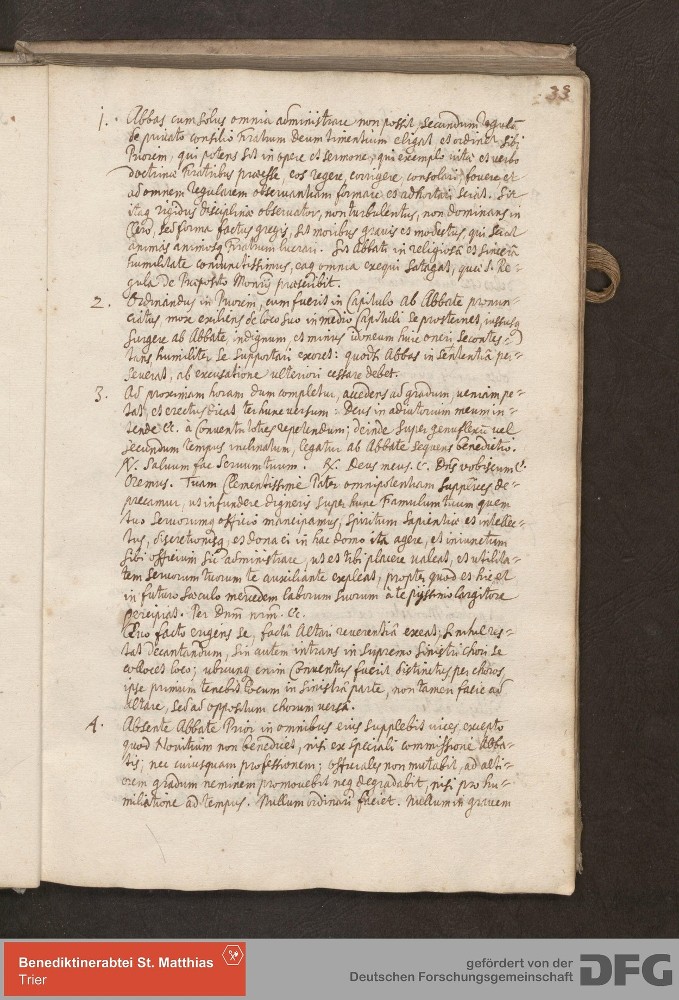 33
1. Abbas cum solus omnia administrare non possit, secundum regulā
de privato consilio Fratrum Deum timentium eligat et ordinet sibi
Priorem, qui potens sit in opere et sermone, qui exemplo vitæ et verbo
doctrinæ Fratribus præesse, eos regere, corrigere, consolari, fovere et
ad omnem regularem observantiam formare et adhortari sciat. Sit
itaq rigidus disciplinæ observator, non turbulentus, non dominans in
Clero, sed forma factus gregis, sit moribus gravis et modestus, qui sciat
animas Fratrum lucrari. Sit Abbati in religiosâ et sincerâ
humilitate coniunctissimus, eaq omnia exequi satagat, quæ S. Re-
gula de Præposito Monrÿ præscribit.
2. Ordinandus in Priorem, cum fuerit in Capitulo ab Abbate pronun-
ciatus, mox exiliens de loco suo in medio Capituli se prosternet, iussusq
surgere ab Abbate, indignum, et minus idoneum huic oneri se contes-
tans, humiliter se supportari exoret: quod si Abbas in sententiâ per-
severat, ab excusatione ulteriori cessare debet.
3. Ad proximam horam dum completur, accedens ad gradum, veniam pe-
tat, et erectus dicat ter hunc versum: Deus in adiutorium meum in-
tende &c. à Conventu toties repetendum; deinde super genuflexū vel
secundum tempus inclinatum, legatur ab Abbate sequens benedictio.
℣. Salvum fac servum tuum. ℟. Deus meus. ℣. Dñs vobiscum &.
Oremus. Tuam Clementissime Pater omnipotentiam supplices de-
precamur, ut infundere digneris super hunc Famulum tuum quem
tuo servorumq officio mancipamus, spiritum sapientiæ et intellec-
tus, discretionisq, et dona ei in hac domo ita agere, et iniunctum
sibi officium sic administrare, ut et tibi placere valeat, et utilita-
tem servorum tuorum te auxiliante expleat, propter quod et hic et
in futuro sæculo mercedem laborum suorum â te pyssimo largitore
percipiat. Per Dnm nrm. &c.
Quo facto erigens se, factâ Altari reverentiâ exeat, si nihil res-
tat decantandum, sin autem intrans in supremo sinistri chori se
collocet loco; ubicunq enim Conventus fuerit distinctus per choros,
ipse primum tenebit locum in sinistrâ parte, non tamen facie ad
altare, sed ad oppositum chorum versâ.
4. Absente Abbate Prior in omnibus eius supplebit vices, excepto
quod Novitium non benedicet, nisi ex speciali commissione Abba-
tis; nec cuiusquam professionem; officiales non mutabit, ad alti-
orem gradum neminem promovebit neq degradabit, nisi pro hu-
miliatione ad tempus. Nullum ordinari faciet. Nullum in gravem
Benediktinerabtei St. Matthias
Trier
gefördert von der
Deutschen Forschungsgemeinschaft
DFG